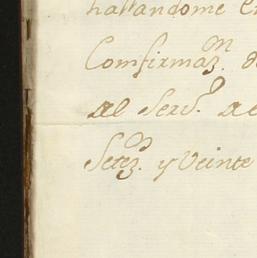 hallandome en
Comfirmaz.on
al Serv.o de
Setez.os y Veinte